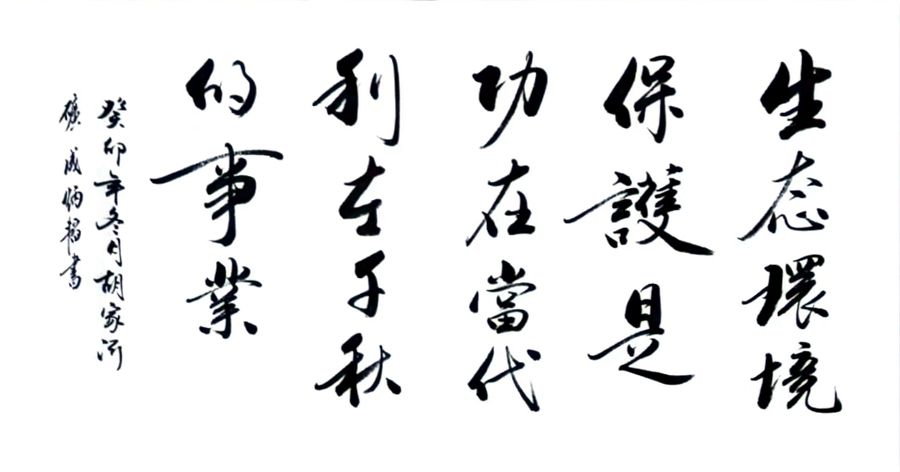 生态環境
保護是
功在當代
利在千秋
的事業
癸卯年冬月胡家河
礦成炳揚書